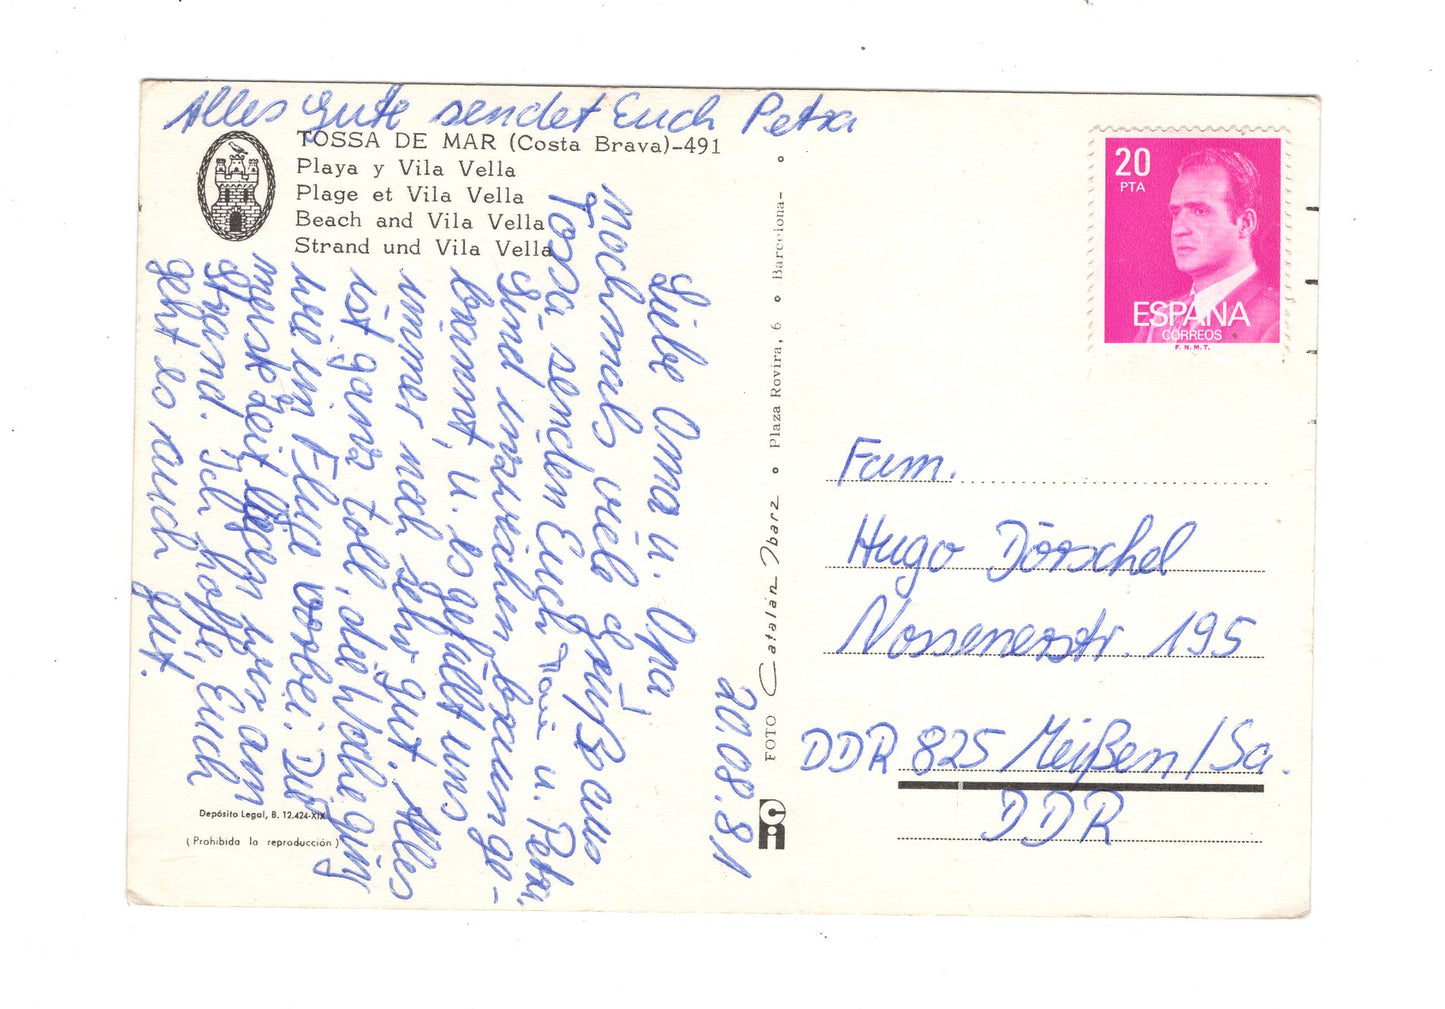 Alles Gute sendet Euch Petra
TOSSA DE MAR (Costa Brava)-491
Playa y Vila Vella
Plage et Vila Vella
Beach and Vila Vella
Strand und Vila Vella
20.08.81
Liebe Oma u. Opa,
nochmals viele Grüße aus
Tossa senden Euch u. Petra.
Sind inzwischen braun ge-
brannt, u. es gefällt uns
immer noch sehr gut. Alles
ist ganz toll, die Woche ging
wie im Fluge vorbei. Die
meiste Zeit liegen wir am
Strand. Ich hoffe, Euch
geht es auch gut.
Depósito Legal, B. 12.424-XIX
(Prohibida la reproducción)
FOTO Catalán Ibarz ∘ Plaza Rovira, 6 ∘ Barcelona- ∘
20
PTA
ESPAÑA
CORREOS
F.N.M.T.
Fam.
Hugo Dörschel
Nossenerstr. 195
DDR 825 Meißen/Sa.
DDR